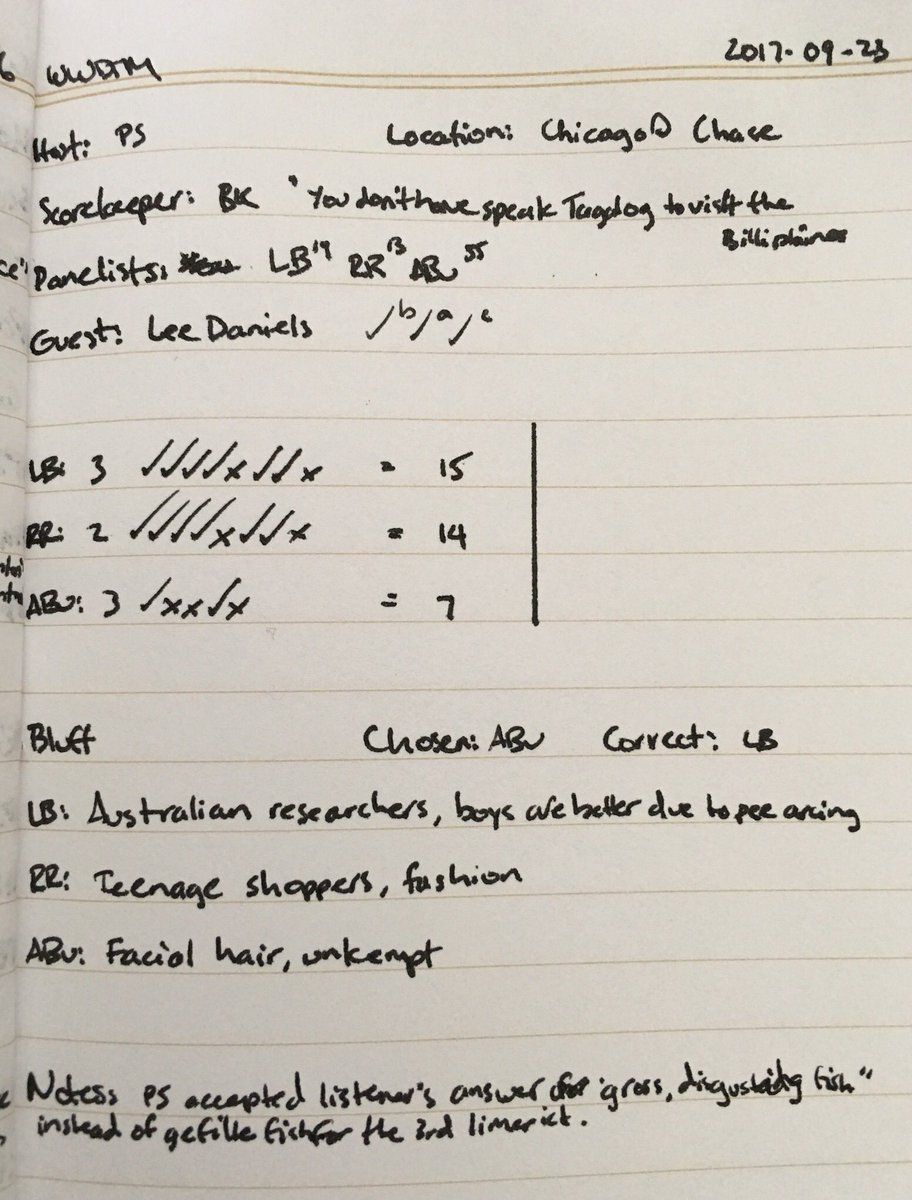 WWDTM 2017-09-23
Host: PS Location: Chicago Chase
Scorekeeper: BK "You don't have speak Tagalog to visit the
Billippines
Panelists: LB'19 RR'13 ABu'55
Guest: Lee Daniels ✓b ✓a ✓c
LB: 3 ✓✓✓✓x✓✓x = 15
RR: 2 ✓✓✓✓x✓✓x = 14
ABu: 3 ✓xx✓x = 7
Bluff Chosen: ABu Correct: LB
LB: Australian researchers, boys are better due to pee arcing
RR: Teenage shoppers, fashion
ABu: Facial hair, unkempt
Notes: PS accepted listener's answer of "gross, disgusting fish"
instead of gefilte fish for the 3rd limerick.